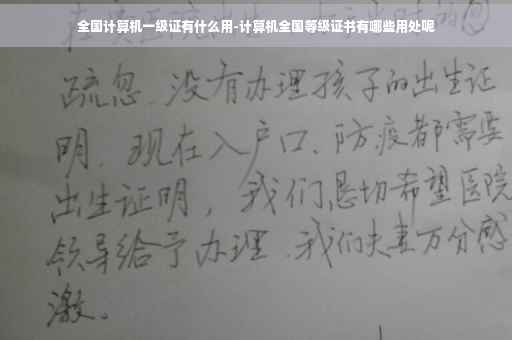 全国计算机一级证有什么用-计算机全国等级证书有哪些用处呢
疏忽、没有办理孩子的出生证
明、现在入户口、防疫都需要
出生证明，我们恳切希望医院
领导给予办理、我们夫妻万分感
激。